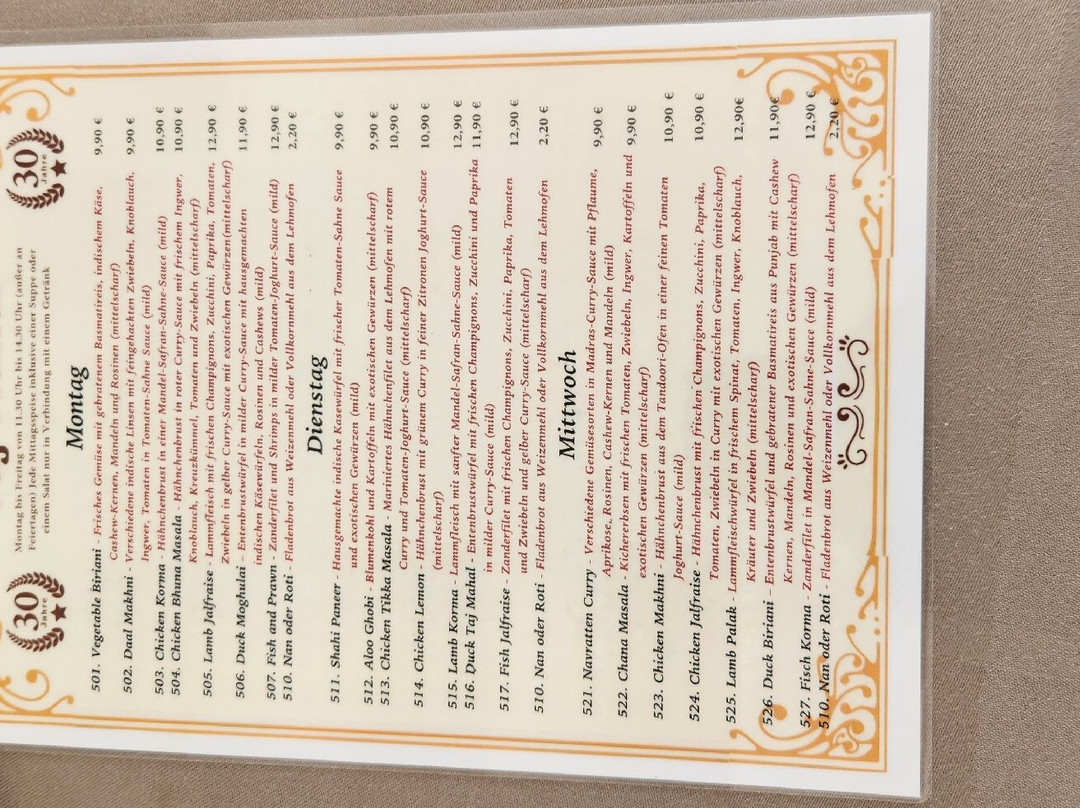 30
Jahre
Montag bis Freitag von 11.30 Uhr bis 14.30 Uhr (außer an
Feiertagen) Jede Mittagsspeise inklusive einer Suppe oder
einem Salat nur in Verbindung mit einem Getränk
30
Jahre
Montag
501. Vegetable Biriani - Frisches Gemüse mit gebratenem Basmatireis, indischem Käse, 9,90 €
Cashew-Kernen, Mandeln und Rosinen (mittelscharf)
502. Daal Makhni - Verschiedene indische Linsen mit feingehackten Zwiebeln, Knoblauch, 9,90 €
Ingwer, Tomaten in Tomaten-Sahne Sauce (mild)
503. Chicken Korma - Hähnchenbrust in einer Mandel-Safran-Sahne-Sauce (mild) 10,90 €
504. Chicken Bhuna Masala - Hähnchenbrust in roter Curry-Sauce mit frischem Ingwer, 10,90 €
Knoblauch, Kreuzkümmel, Tomaten und Zwiebeln (mittelscharf)
505. Lamb Jalfraise - Lammfleisch mit frischen Champignons, Zucchini, Paprika, Tomaten, 12,90 €
Zwiebeln in gelber Curry-Sauce mit exotischen Gewürzen(mittelscharf)
506. Duck Moghulai - Entenbrustwürfel in milder Curry-Sauce mit hausgemachten 11,90 €
indischen Käsewürfeln, Rosinen und Cashews (mild)
507. Fish and Prawn - Zanderfilet und Shrimps in milder Tomaten-Joghurt-Sauce (mild) 12,90 €
510. Nan oder Roti - Fladenbrot aus Weizenmehl oder Vollkornmehl aus dem Lehmofen 2,20 €
Dienstag
511. Shahi Paneer - Hausgemachte indische Käsewürfel mit frischer Tomaten-Sahne Sauce 9,90 €
und exotischen Gewürzen (mild)
512. Aloo Ghobi - Blumenkohl und Kartoffeln mit exotischen Gewürzen (mittelscharf) 9,90 €
513. Chicken Tikka Masala - Mariniertes Hähnchenfilet aus dem Lehmofen mit rotem 10,90 €
Curry und Tomaten-Joghurt-Sauce (mittelscharf)
514. Chicken Lemon - Hähnchenbrust mit grünem Curry in feiner Zitronen Joghurt-Sauce 10,90 €
(mittelscharf)
515. Lamb Korma - Lammfleisch mit sanfter Mandel-Safran-Sahne-Sauce (mild) 12,90 €
516. Duck Taj Mahal - Entenbrustwürfel mit frischen Champignons, Zucchini und Paprika 11,90 €
in milder Curry-Sauce (mild)
517. Fish Jalfraise - Zanderfilet mit frischen Champignons, Zucchini, Paprika, Tomaten 12,90 €
und Zwiebeln und gelber Curry-Sauce (mittelscharf)
510. Nan oder Roti - Fladenbrot aus Weizenmehl oder Vollkornmehl aus dem Lehmofen 2,20 €
Mittwoch
521. Navratten Curry - Verschiedene Gemüsesorten in Madras-Curry-Sauce mit Pflaume, 9,90 €
Aprikose, Rosinen, Cashew-Kernen und Mandeln (mild)
522. Chana Masala - Kichererbsen mit frischen Tomaten, Zwiebeln, Ingwer, Kartoffeln und 9,90 €
exotischen Gewürzen (mittelscharf)
523. Chicken Makhni - Hähnchenbrust aus dem Tandoori-Ofen in einer feinen Tomaten 10,90 €
Joghurt-Sauce (mild)
524. Chicken Jalfraise - Hähnchenbrust mit frischen Champignons, Zucchini, Paprika, 10,90 €
Tomaten, Zwiebeln in Curry mit exotischen Gewürzen (mittelscharf)
525. Lamb Palak - Lammfleischwürfel in frischem Spinat, Tomaten, Ingwer, Knoblauch, 12,90€
Kräuter und Zwiebeln (mittelscharf)
526. Duck Biriani - Entenbrustwürfel und gebratener Basmatireis aus Punjab mit Cashew 11,90€
Kernen, Mandeln, Rosinen und exotischen Gewürzen (mittelscharf)
527. Fisch Korma - Zanderfilet in Mandel-Safran-Sahne-Sauce (mild) 12,90 €
510. Nan oder Roti - Fladenbrot aus Weizenmehl oder Vollkornmehl aus dem Lehmofen 2,20 €